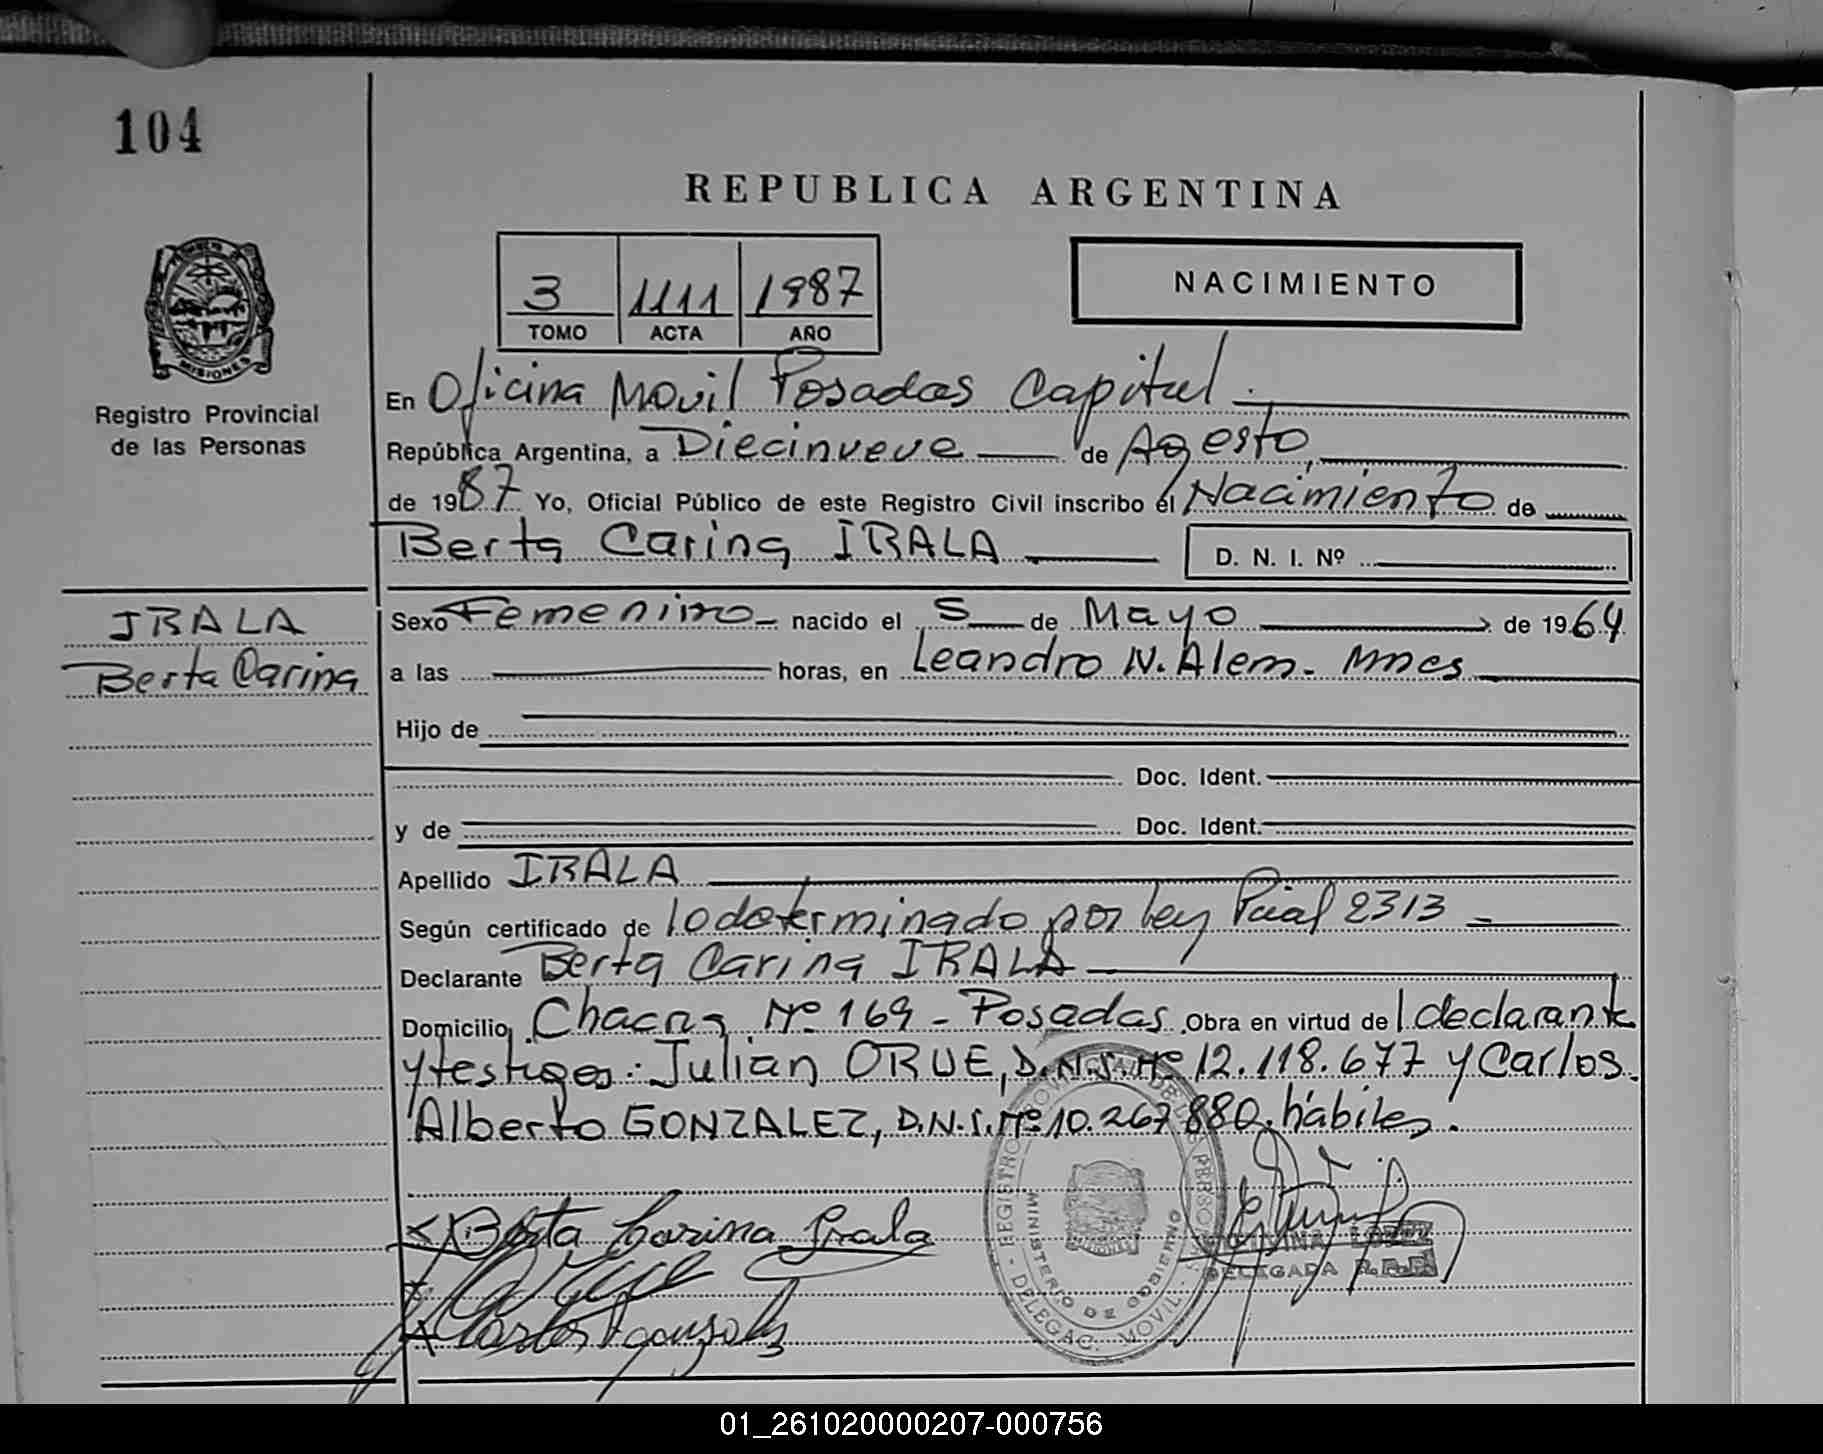 104
REPUBLICA ARGENTINA
3 1111 1987
TOMO ACTA AÑO
NACIMIENTO
MISIONES
Registro Provincial
de las Personas
En Oficina Movil Posadas Capital.
República Argentina, a Diecinueve de Agosto,
de 1987 Yo, Oficial Público de este Registro Civil inscribo el Nacimiento de
Berta Carina IRALA D. N. I. Nº
IRALA
Berta Carina
Sexo Femenino nacido el 5 de Mayo de 1964
a las horas, en Leandro N. Alem. Mnes
Hijo de
Doc. Ident.
y de Doc. Ident.
Apellido IRALA
Según certificado de lo determinado por Ley Pcial 2313
Declarante Berta Carina IRALA
Domicilio Chacra Nº 169 - Posadas. Obra en virtud de l declarante
y testigos: Julian ORUE, D.N.I. Nº 12.118.677 y Carlos
Alberto GONZALEZ, D.N.I. Nº 10.267.880, hábiles.
Berta Carina Irala
Orue
Carlos A Gonzalez
REGISTRO PROVINCIAL DE LAS PERSONAS
MINISTERIO DE GOBIERNO
- DELEGAC. MOVIL -
LOPEZ
DELEGADA R.P.P.
01_261020000207-000756